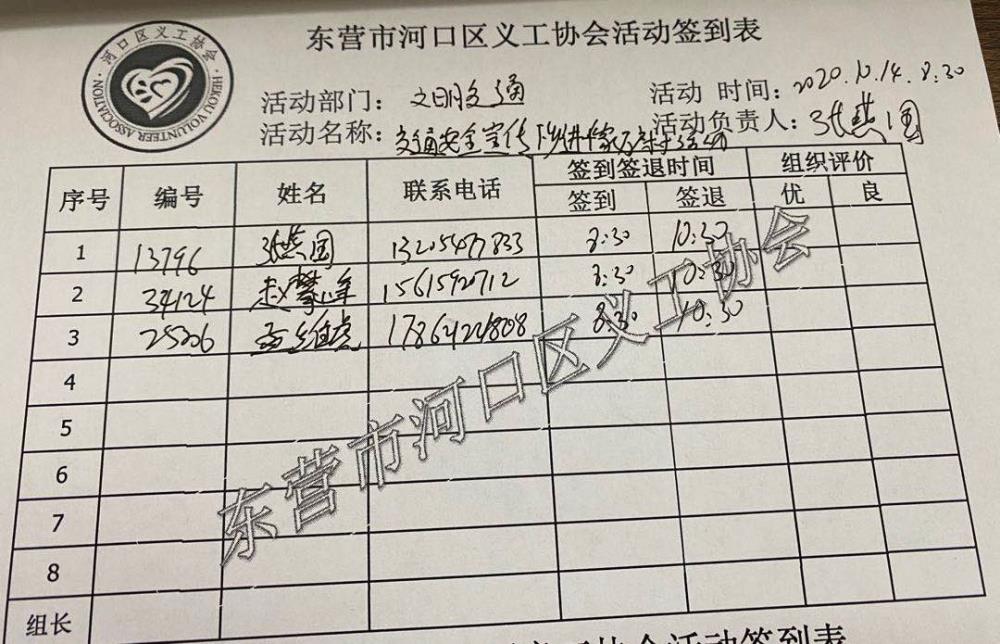 东营市河口区义工协会活动签到表
·河口区义工协会·
HEKOU VOLUNTEER ASSOCIATION
活动部门: 文明交通
活动 时间: 2020.10.14. 8:30
活动名称: 交通安全宣传 活动
活动负责人: 张燕国
序号 编号 姓名 联系电话 签到签退时间 组织评价
签到 签退 优 良
1 13796 张燕国 13205477833 8:30 10:30
2 34124 赵攀峰 15615920712 8:30 10:30
3 维虎 8:30 10:30
4
5
6
7
8
组长
东营市河口区义工协会
协会活动签到表